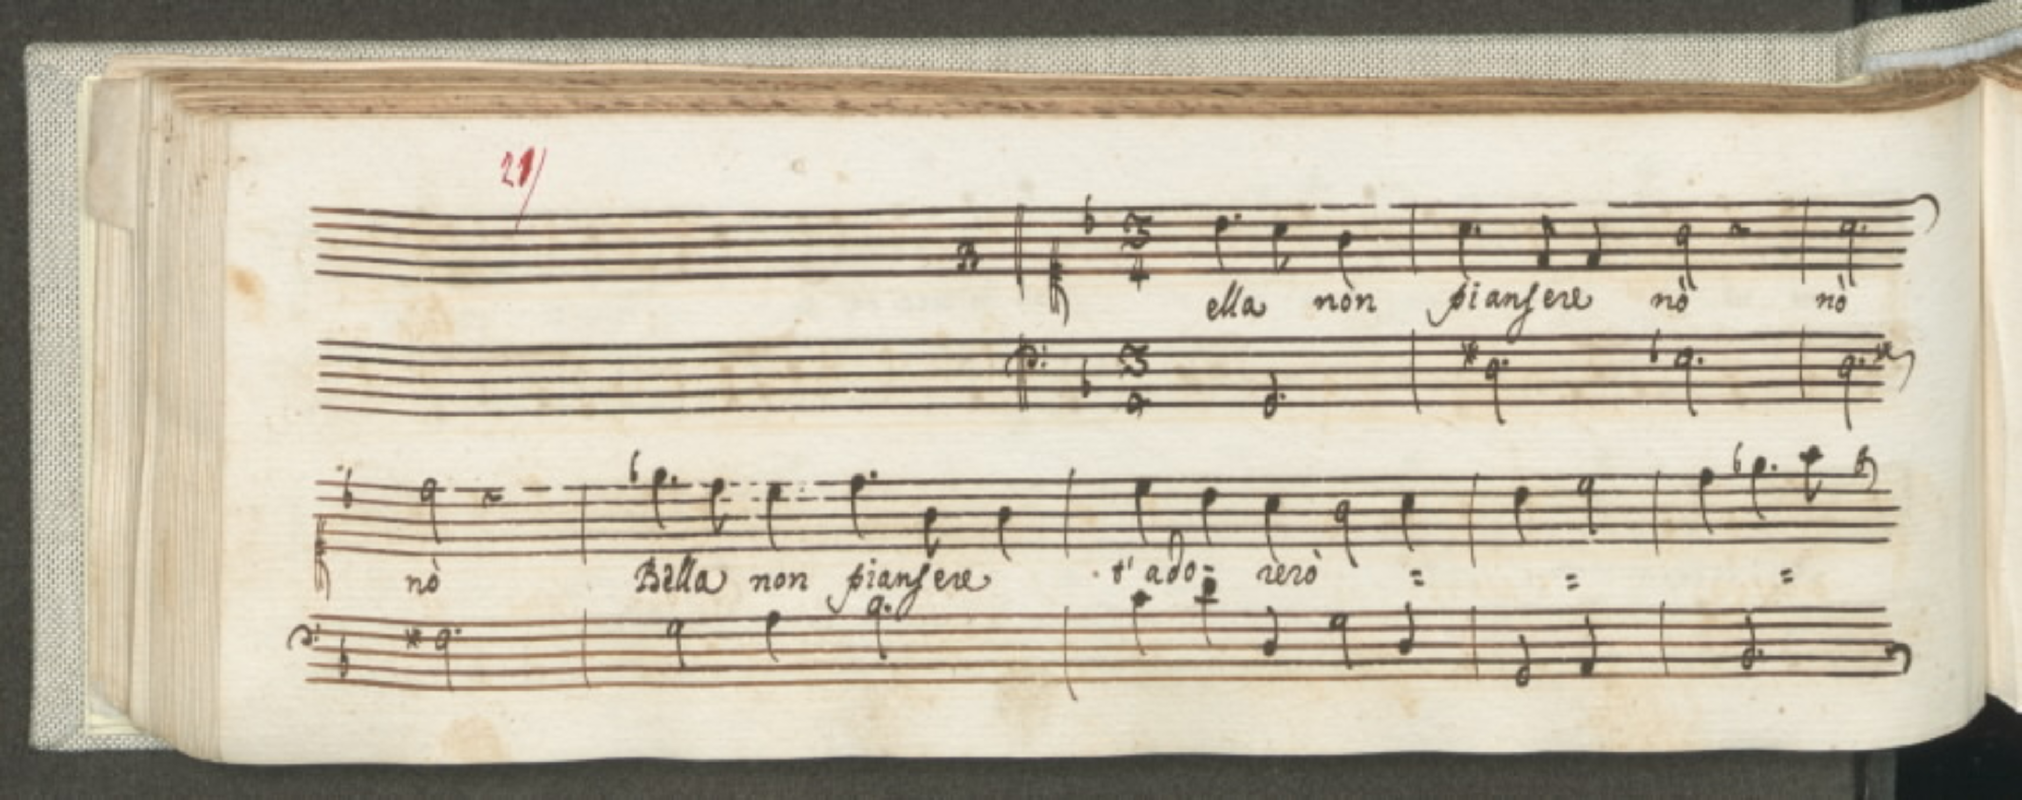 21
3
4
ella non piansere nò nò
3
4
nò Bella non piansere t'ado= rerò = = =